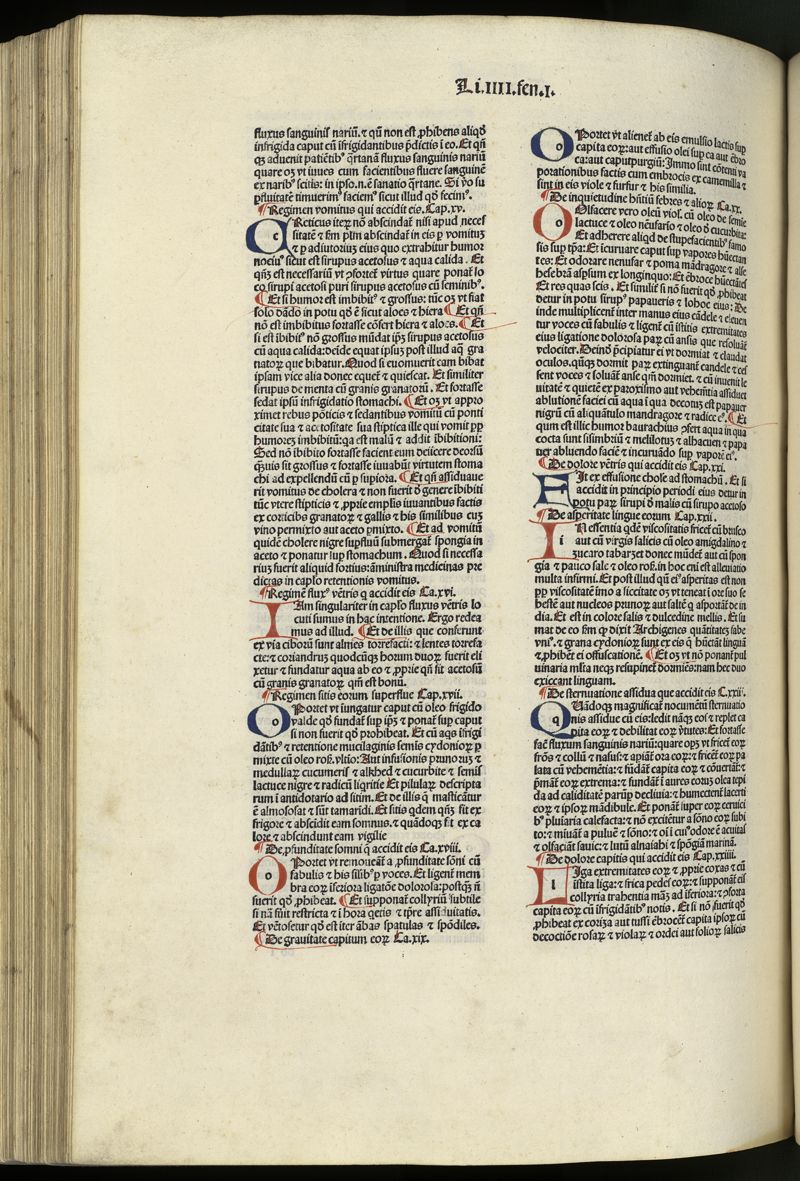 Li.IIII.fen.I.
fluxus sanguinis nariũ. ⁊ qñ non est ꝓhibens aliqđ
infrigida caput cũ ĩfrigidantibus p̃dictis ĩ eo. Et qñ
qȝ aduenit patiẽtibꝰ q̃rtanã fluxus sanguinis nariũ
quare oȝ vt iuues cum facientibus fluere sanguinẽ
ex naribꝰ scitis: in ipso.n.ẽ sanatio q̃rtane. Si ṽo su
ꝑfluitatẽ timuerimꝰ faciemꝰ sicut illud qđ fecimꝰ.
¶Regimen vomitus qui accidit eis. Cap.xv.
sitatẽ ⁊ ẜm plm̃ abscindat̃ in eis ꝑ vomitũ
⁊ ꝑ adiutoriũ eius quo extrahitur humor
nociuꝰ sicut est sirupus acetosus ⁊ aqua calida. Et
qñȝ est necessariũ vt ꝯfortet̃ virtus quare ponat̃ lo
co sirupi acetosi puri sirupus acetosus cũ seminibꝰ.
¶Et si humor est imbibitꝰ ⁊ grossus: tũc oȝ vt fiat
solo dãdo in potu qđ ẽ sicut aloes ⁊ hiera ¶Et qñ
nõ est imbibitus fortasse cõfert hiera ⁊ aloes. ¶Et
si est ĩbibitꝰ nõ grossus mũdat ip̃ȝ sirupus acetosus
cũ aqua calida: deĩde equat ipsuȝ post illud aq̃ gra
natoꝝ que bibatur. Quod si euomuerit eam bibat
ipsam vice alia donec equet̃ ⁊ quiescat. Et similiter
sirupus de menta cũ granis granatorũ. Et fortasse
sedat ipsũ infrigidatio stomachi. ¶Et oȝ vt appro
ximet rebus põticis ⁊ sedantibus vomitũ cũ ponti
citate sua ⁊ acetositate sua stiptica ille qui vomit ꝓp
humoreȝ imbibitũ: qa est malũ ⁊ addit ĩbibitioni:
Sed nõ ibibito fortasse facient eum deiicere deorsũ
q̃uis sit grossus ⁊ fortasse iuuabũt virtutem stoma
chi ad expellendũ cũ ꝑ supiora. ¶Et qñ assiduaue
rit vomitus de cholera ⁊ non fuerit đ genere ĩbibiti
tũc vtere stipticis ⁊ ꝓprie emplĩs iuuantibus factis
ex corticibs granatoꝝ ⁊ gallis ⁊ his similibus cuȝ
vino permixto aut aceto ꝑmixto. ¶Et ad vomitũ
quidẽ cholere nigre supfluũ submergat̃ spongia in
aceto ⁊ ponatur sup stomachum. Quod si necessa
riuȝ fuerit aliquid fortius: aministra medicinas pre
dictas in caplo retentionis vomitus.
¶Regimẽ fluxꝰ vẽtris q accidit eis Ca.xvi.
IAm singulariter in caplo fluxus vẽtris lo
cuti sumus in hac intentione. Ergo redea
mus ad illud. ¶Et de illis que conferunt
ex via ciborũ sunt almies torrefacti: ⁊ lentes torrefa
cte: ⁊ coriandruȝ quodcũqȝ horum duoꝝ fuerit eli
xetur ⁊ fundatur aqua ab eo ⁊ ꝓprie qñ sit acetosũ
cũ granis granatoꝝ qm̃ est bonũ.
¶Regimen sitis eorum superflue Cap.xvii.
OPortet vt iungatur caput cũ oleo frigido
valde qđ fundat̃ sup ip̃ȝ ⁊ ponat̃ sup caput
si non fuerit qđ prohibeat. Et cũ aqs ĩfrigi
dãtibꝰ ⁊ retentione mucilaginis semis cydonioꝝ ꝑ
mixte cũ oleo rosꝫ. vltio: Aut infusionis prunoruȝ ⁊
medullaꝝ cucumeris ⁊ alkhed ⁊ cucurbite ⁊ semis
lactuce nigre ⁊ radicũ liqritie Et pilulaꝝ descripta
rum ĩ antidotario ad sitim. Et de illis q̃ masticãtur
ẽ almososat ⁊ sũt tamarĩdi. Et sitis qdem qñȝ fit ex
frigore ⁊ abscidit eam somnus. ⁊ quãdoqȝ fit ex ca
lore ⁊ abscindunt eam vigilie
¶De ꝓfunditate somni q̃ accidit eis Ca.xviii.
OPortet vt remoueãt a ꝓfunditate sõni cũ
fabulis ⁊ his silibꝰ ꝑ voces. Et ligent̃ mem
bra eorꝝ ĩferiora ligatõe dolorosa: postqȝ ñ
fuerit qđ ꝓhibeat. ¶Et supponat̃ collyriũ subtile
si nã fuit restricta ⁊ ĩ hora qetis ⁊ tpre assiduitatis.
Et vẽtosetur qđ est iter ãbas spatulas ⁊ spõdiles.
¶De grauitate capitum eoꝝ Ca.xix.
OPortet vt alienet̃ ab eis emulsio lactis sup
capita eoꝝ: aut effusio olei sup ea aut ẽbro
ca: aut caputpurgiũ: Immo sint cõtenti va
porationibus factis cum embrocis ex camemilla ⁊
sint in eis viole ⁊ furfur ⁊ his similia.
¶De inquietudine hñtiũ febres ⁊ alioꝝ Ca.xx.
OLfacere vero oleũ viol. cũ oleo de semĩe
lactuce ⁊ oleo nẽufario ⁊ oleo đ cucurbita:
Et adherere aliqd de stupefacientibꝰ famo
sis sup tp̃a: Et ĩcuruare caput sup vapores hũectan
tes: Et odorare nenufar ⁊ poma mãdragore ⁊ alie
hebehrã asp̃sum ex longinquo: Et ẽbroce hũectãtes
Et res quas scis. Et similĩ si nõ fuerit qđ ꝓhibeat
detur in potu sirupꝰ papaueris ⁊ lohoc eius: De
inde multiplicent̃ inter manus eius cãdele ⁊ eleuen
tur voces cũ fabulis ⁊ ligent̃ cũ ĩstitis extremitates
eius ligatione dolorosa paꝝ cũ ansis que resoluãt̃
velociter. Deinđ p̃cipiatur ei vt dormiat ⁊ claudat
oculos. qũqȝ dormit paꝝ extinguant̃ candele ⁊ ces
sent voces ⁊ soluãt̃ anse qm̃ dormiet. ⁊ cũ inuenit le
uitatẽ ⁊ quietẽ ex paroxismo aut vehemẽtia assiduet
ablutionẽ faciei cũ aqua ĩ qua decoctũ est papauer
nigrũ cũ aliquãtulo mandragore ⁊ radice eꝰ. ¶Et
qum est illic humor baurachius ꝯfert aqua in qua
cocta sunt sisimbriũ ⁊ melilotuȝ ⁊ albacuen ⁊ papa
uer abluendo faciẽ ⁊ incuruãdo sup vaporẽ eiꝰ.
¶De dolore vẽtris qui accidit eis Cap.xxi.
FIt ex effusione chole ad stomachũ. Et si
accidit in principio periodi eius detur in
potu paꝝ sirupi đ malis cũ sirupo acetoso
¶De asperitate lingue eorum Cap.xxii.
IN essentia qdẽ viscositatis fricet̃ cũ brusco
aut cũ virgis salicis cũ oleo amigdalino ⁊
zucaro tabarzet donec mũdet̃ aut cũ spon
gia ⁊ pauco sale ⁊ oleo rosꝫ. in hoc enĩ est alleuiatio
multa infirmi. Et post illud qñ eiꝰ asperitas est non
ꝓp viscositatẽ imo a siccitate oȝ vt teneat ĩ ore suo se
bestẽ aut nucleos prunoꝝ aut saltẽ q̃ asportãt̃ de in
dia. Et est in colore salis ⁊ dulcedine mellis. Et su
mat de eo ẜm q̃ dixit Archigenes quãtitatẽ fabe
vniꝰ. ⁊ grana cydonioꝝ sunt ex eis q̃ hũectãt linguã
⁊ ꝓhibẽt ei offuscationẽ. ¶Et oȝ vt nõ ponant̃ pul
uinaria mlta neqȝ resupinet̃ dormiẽs: nam hec duo
exiccant linguam.
¶De sternuatione assidua que accidit eis C.xxiiꝰ.
QUãdoqȝ magnificat̃ nocumẽtũ sternuatio
nis assidue cũ eis: ledit nãqȝ eos ⁊ replet ca
pita eoꝝ ⁊ debilitat eoꝝ v̓tutes: Et fortasse
fac̃ fluxum sanguinis nariũ: quare opȝ vt fricet̃ eoꝝ
frõs ⁊ collũ ⁊ nasus: ⁊ apiãt̃ ora eoꝝ: ⁊ fricet̃ eoꝝ pa
lata cũ vehemẽtia: ⁊ fũdãt̃ capita eoꝝ ⁊ cõuertãt̃: ⁊
p̃mãt̃ eoꝝ extrema: ⁊ fundãt̃ ĩ aures eoruȝ olea tepi
da ad caliditatẽ parũp decliuia: ⁊ humectent̃ lacerti
eoꝝ ⁊ ipsoꝝ mãdibule. Et ponãt̃ super eoꝝ ceruici
bꝰ pluuiaria calefacta: ⁊ nõ excitẽtur a sõno eoꝝ subi
to: ⁊ muiãt̃ a puluẽ ⁊ sõno: ⁊ oĩ ĩ cuiꝰodore ẽ acuitas
⁊ olfaciãt sauic: ⁊ lutũ alnaiahi ⁊ spõgiã marinã.
¶De dolore capitis qui accidit eis Cap.xxiiii.
LIga extremitates eoꝝ ⁊ ꝓprie coxas ⁊ cũ
ĩstita liga: ⁊ frica pedes eoꝝ: ⁊ supponãt̃ eis
collyria trahentia mãȝ ad ĩferiora: ⁊ ꝯforta
capita eoꝝ cũ ĩfrigidãtibꝰ notis. Et si nõ fuerit qđ
ꝓhibeat ex coriza aut tussi ẽbrocẽt̃ capita ipsoꝝ cũ
decoctiõe rosaꝝ ⁊ violaꝝ ⁊ ordei aut folioꝝ salicis